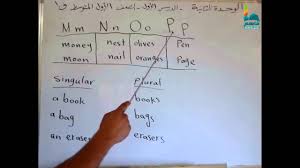 الوحدة الثانية - الدرس الأول - الصف الأول المتوسط
Mm Nn Oo P,p
money nest olives Pen
moon nail oranges Page
Singular Plural
a book books
a bag bags
an eraser erasers